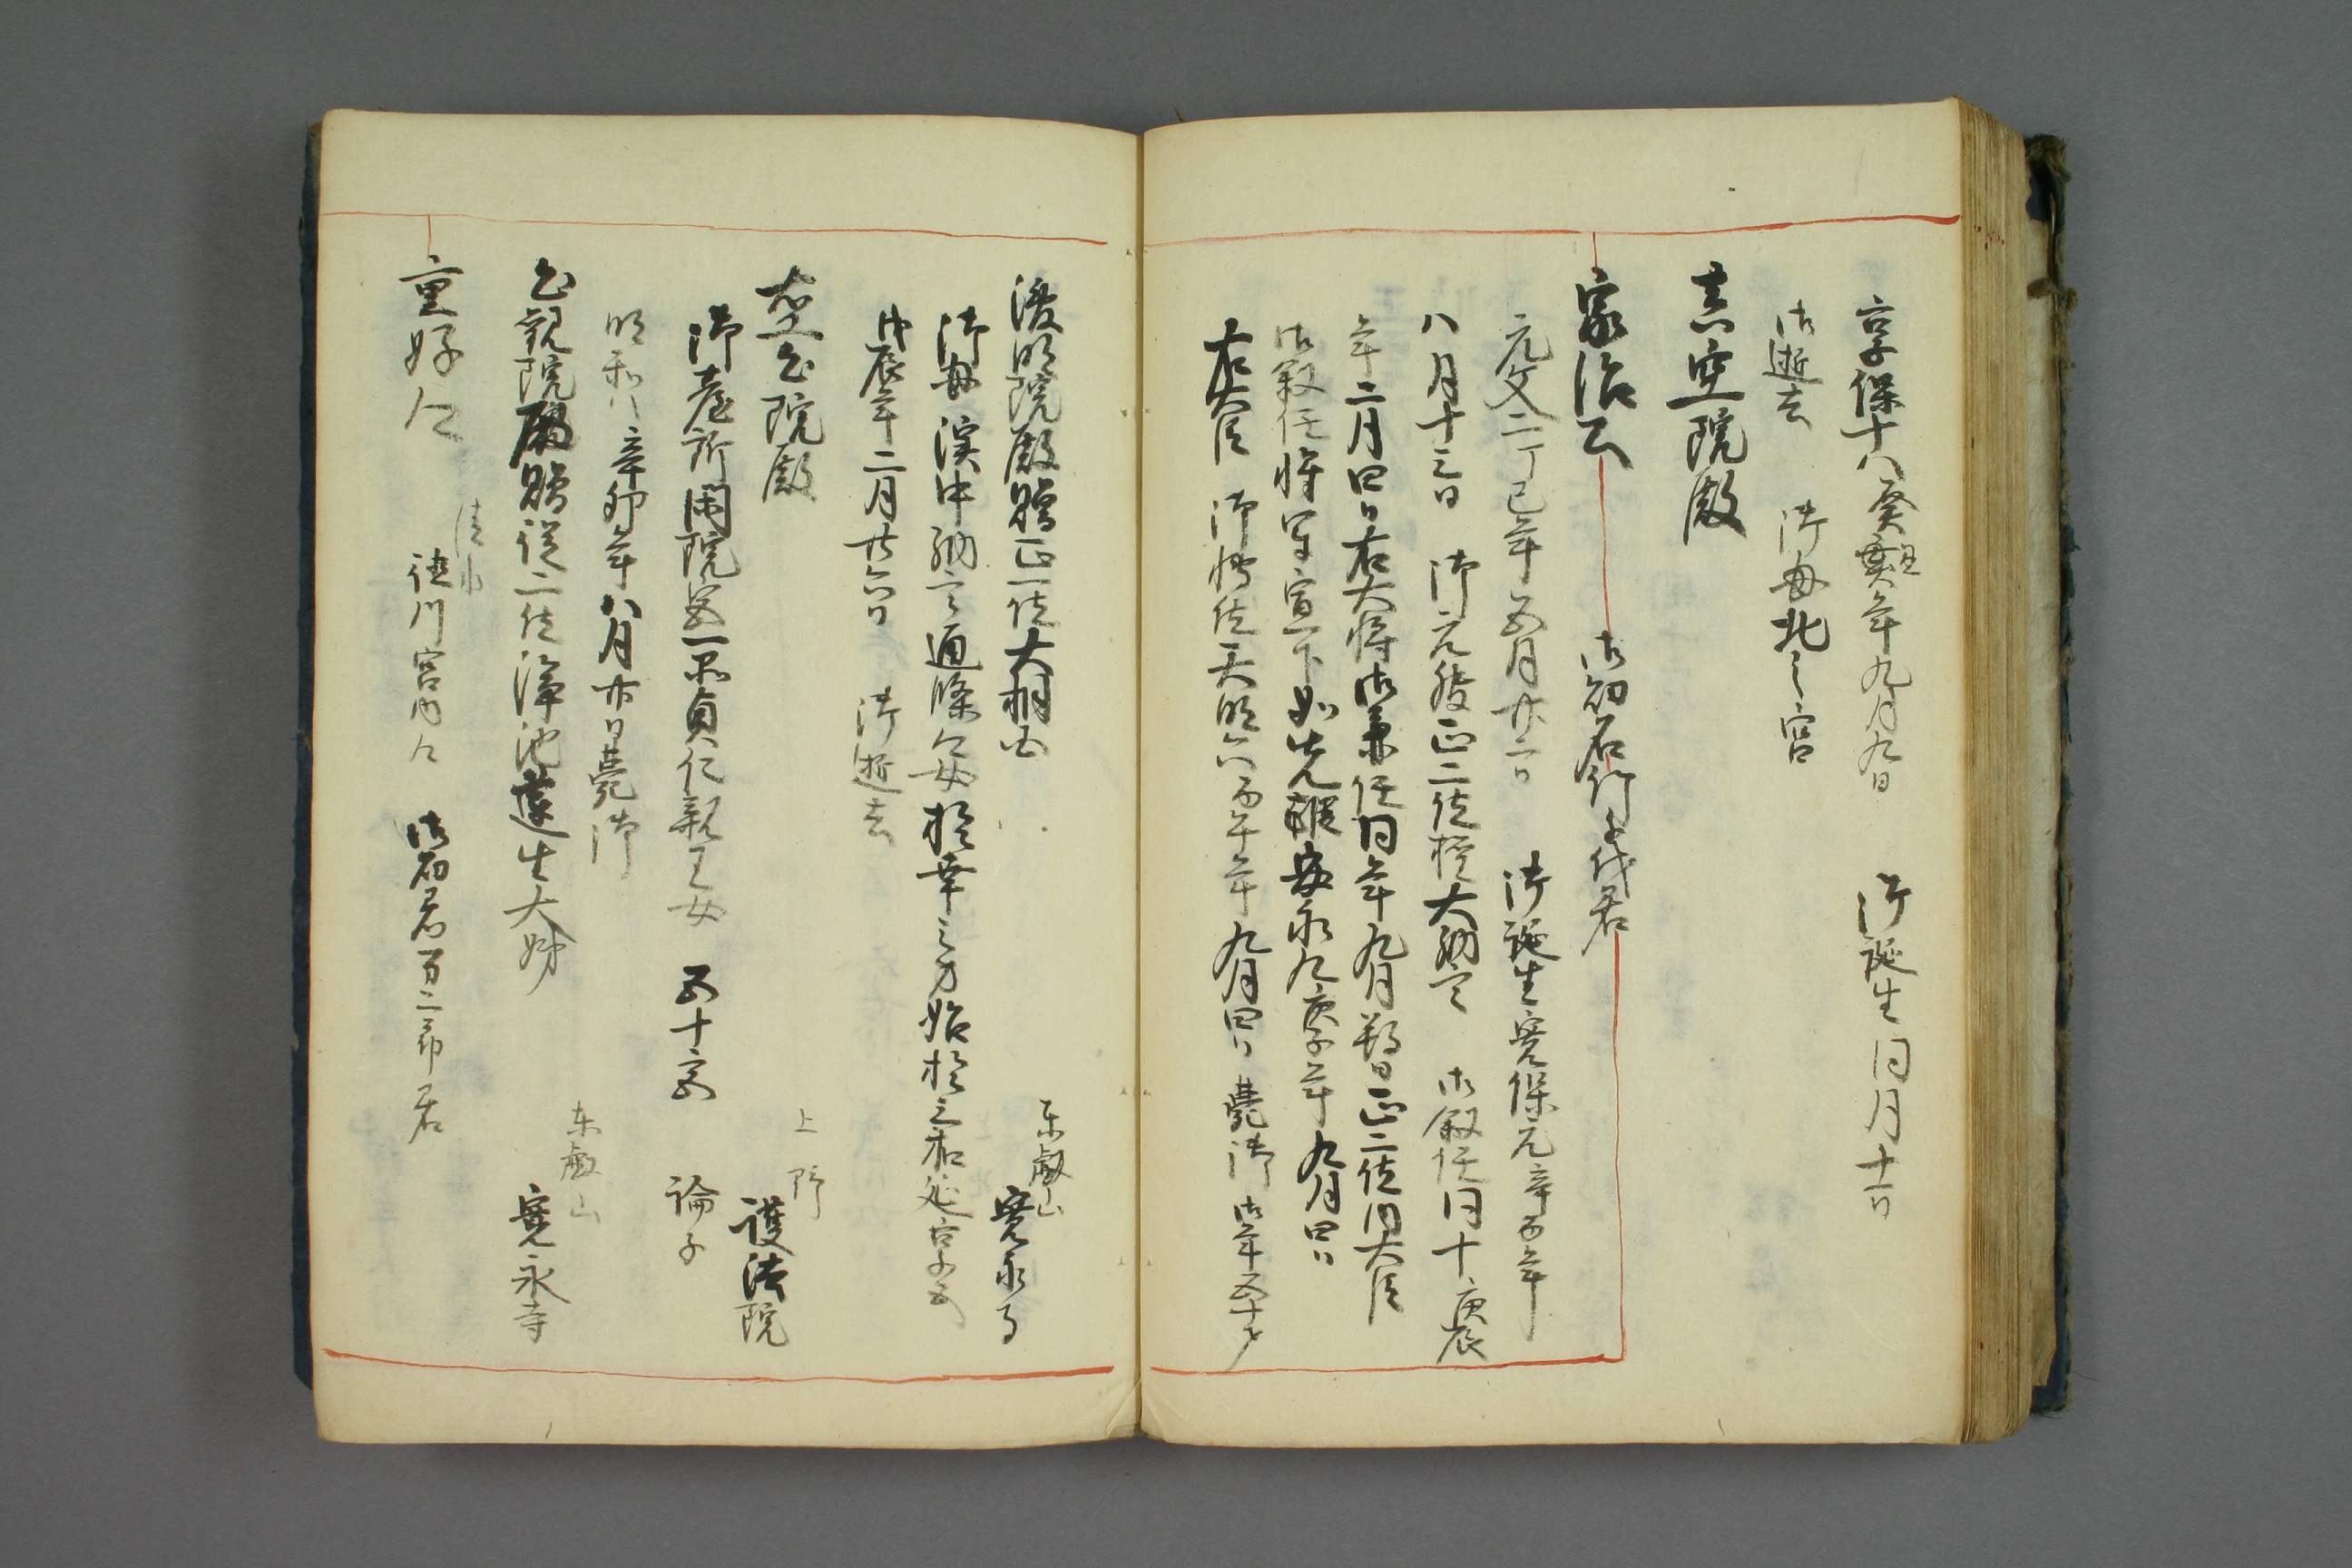 享保十八癸丑年九月九日 御誕生同月十一日
御逝去 御母北之宮
真空院殿
家治公 御幼名竹千代君
元文二丁巳年五月廿二日 御誕生寛保元辛酉年
八月十三日 御元服正二位権大納言 御叙任同十庚辰
年二月四日右大将御兼任同年九月朔日正二位内大臣
御叙任将軍宣下如先蹤安永九庚子年九月四日
右大臣 御転任天明六丙午年九月四日薨御 御年五十才
東叡山
浚明院殿贈正一位大相国 寛永寺
御母渓中納言通条卿女於幸之方始於
戊辰年二月廿六日 御逝去
上野
至心院殿 護法院
御台所閑院宮一品貞仁親王女 五十宮 論子
明和八辛卯年八月廿日薨御
東叡山
心観院殿贈従二位浄池蓮生大姉 寛永寺
清水
重好卿 徳川宮内卿 御幼名万二郎君